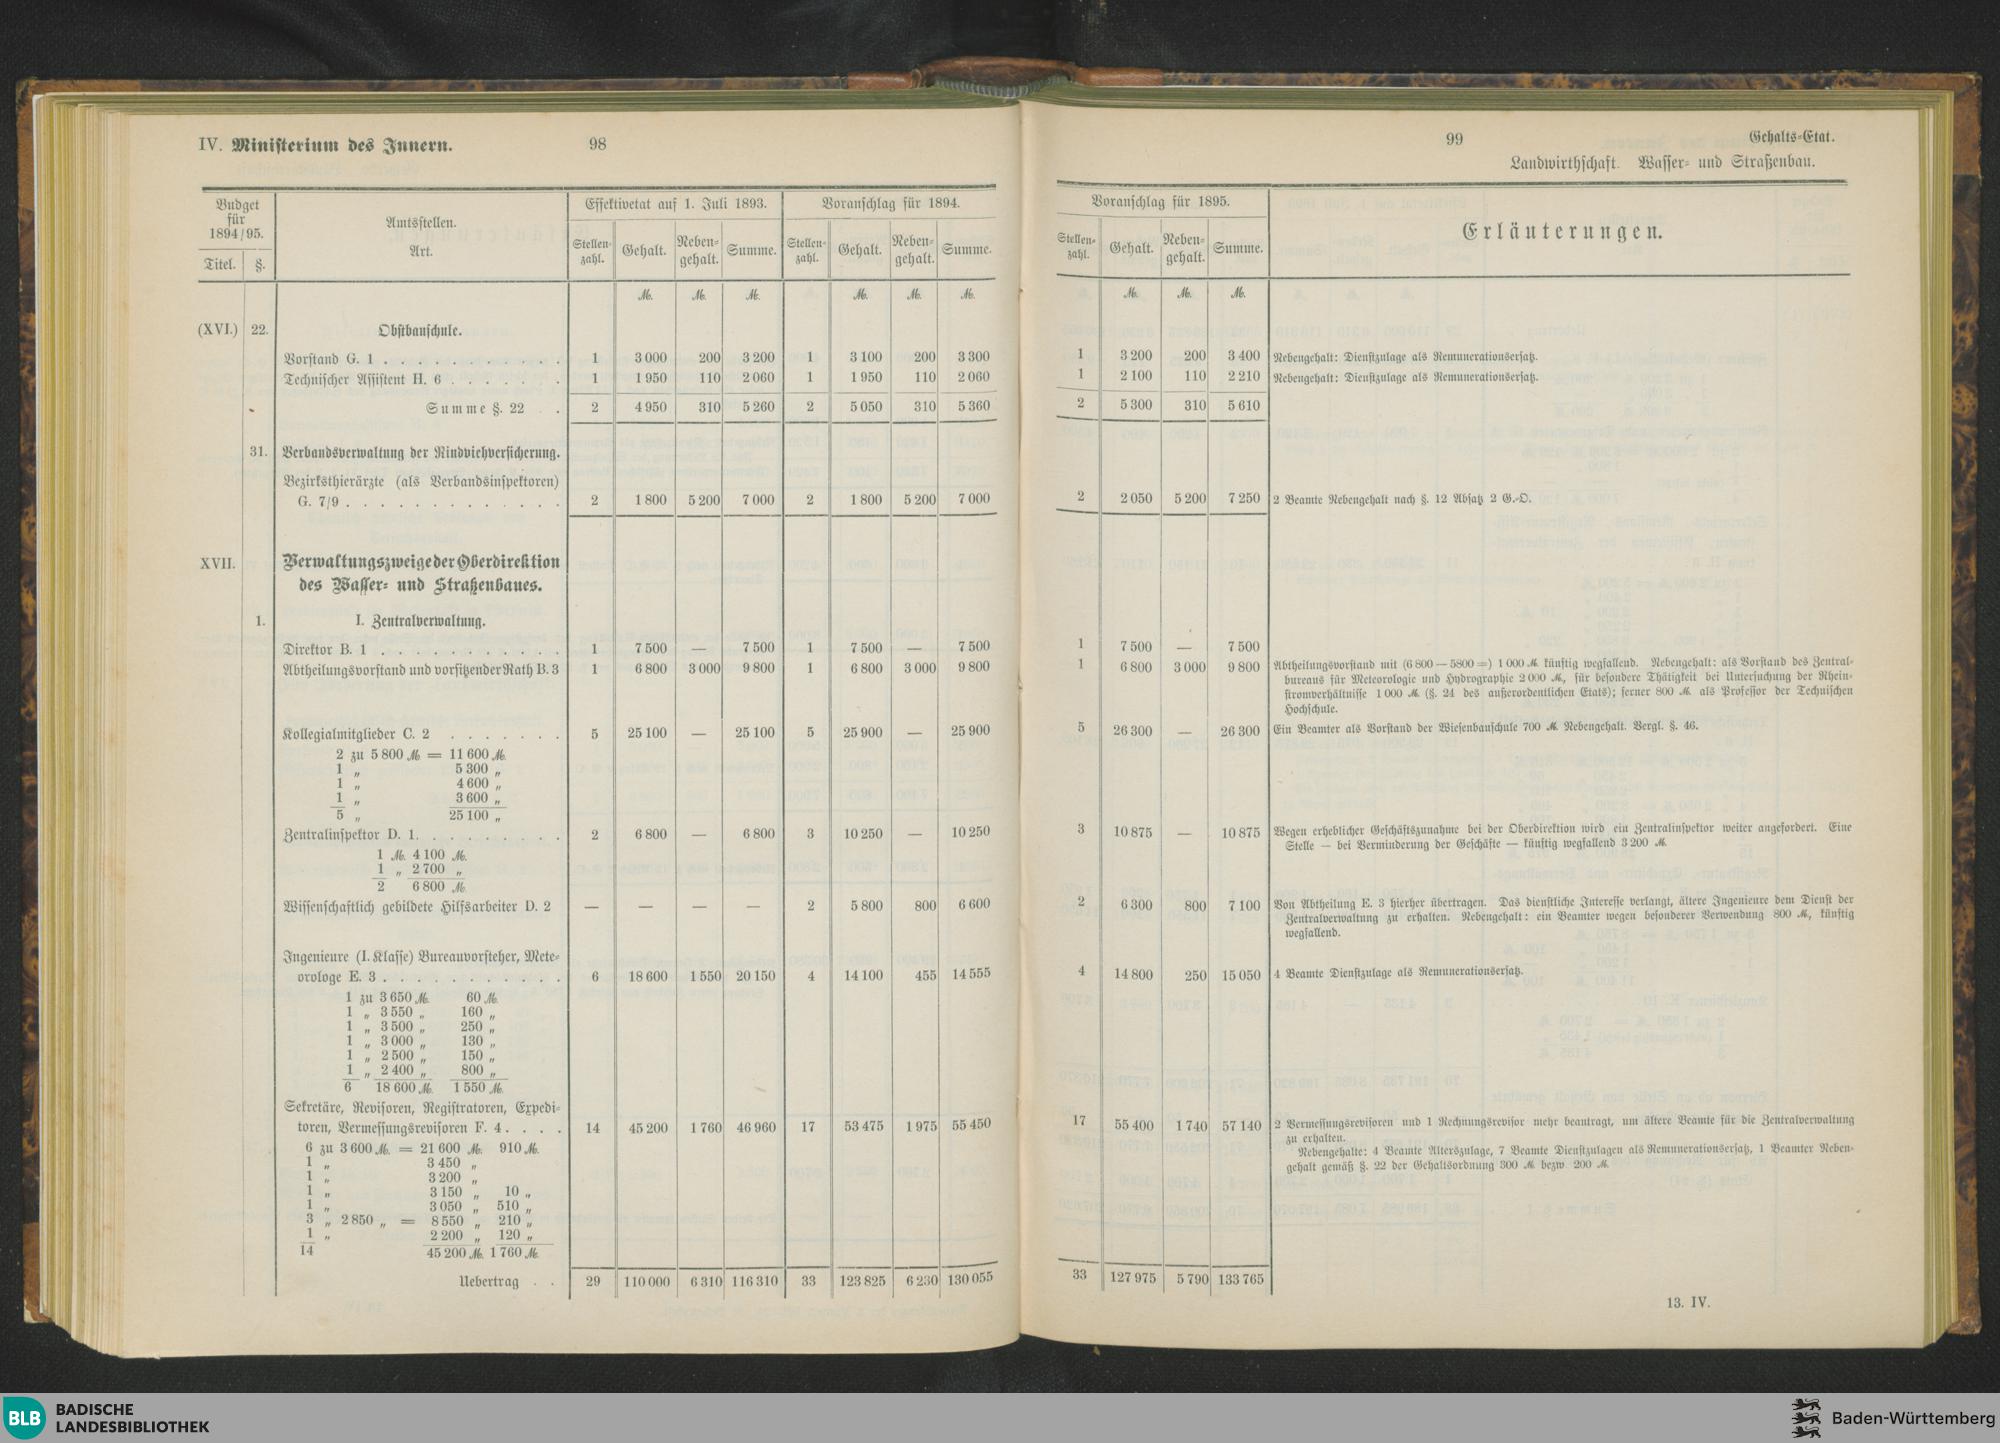 IV. Ministerium des Innern.
98
Budget für 1894/95.
Titel. §.
Amtsstellen.
Art.
Effektivetat auf 1. Juli 1893.
Voranschlag für 1894.
Stellenzahl. Gehalt. Nebengehalt. Summe. Stellenzahl. Gehalt. Nebengehalt. Summe.
M. M. M. M. M. M.
(XVI.) 22. Obstbauschule.
Vorstand G. 1 . . . . . . . . . . . 1 3 000 200 3 200 1 3 100 200 3 300
Technischer Assistent H. 6 . . . . . . . 1 1 950 110 2 060 1 1 950 110 2 060
Summe §. 22 . . 2 4 950 310 5 260 2 5 050 310 5 360
31. Verbandsverwaltung der Rindviehversicherung.
Bezirksthierärzte (als Verbandsinspektoren)
G. 7/9 . . . . . . . . . . . . . 2 1 800 5 200 7 000 2 1 800 5 200 7 000
XVII. Verwaltungszweige der Oberdirektion
des Wasser- und Straßenbaues.
1. I. Zentralverwaltung.
Direktor B. 1 . . . . . . . . . . . 1 7 500 — 7 500 1 7 500 — 7 500
Abtheilungsvorstand und vorsitzender Rath B. 3 1 6 800 3 000 9 800 1 6 800 3 000 9 800
Kollegialmitglieder C. 2 . . . . . . . 5 25 100 — 25 100 5 25 900 — 25 900
2 zu 5 800 M. = 11 600 M.
1 „ 5 300 „
1 „ 4 600 „
1 „ 3 600 „
5 „ 25 100 „
Zentralinspektor D. 1. . . . . . . . . . 2 6 800 — 6 800 3 10 250 — 10 250
1 M. 4 100 M.
1 „ 2 700 „
2 6 800 M.
Wissenschaftlich gebildete Hilfsarbeiter D. 2 — — — — 2 5 800 800 6 600
Ingenieure (I. Klasse) Bureauvorsteher, Mete-
orologe E. 3 . . . . . . . . . . . 6 18 600 1 550 20 150 4 14 100 455 14 555
1 zu 3 650 M. 60 M.
1 „ 3 550 „ 160 „
1 „ 3 500 „ 250 „
1 „ 3 000 „ 130 „
1 „ 2 500 „ 150 „
1 „ 2 400 „ 800 „
6 18 600 M. 1 550 M.
Sekretäre, Revisoren, Registratoren, Expedi-
toren, Vermessungsrevisoren F. 4 . . . . 14 45 200 1 760 46 960 17 53 475 1 975 55 450
6 zu 3 600 M. = 21 600 M. 910 M.
1 „ 3 450 „
1 „ 3 200 „
1 „ 3 150 „ 10 „
1 „ 3 050 „ 510 „
3 „ 2 850 „ = 8 550 „ 210 „
1 „ 2 200 „ 120 „
14 45 200 M. 1 760 M.
Uebertrag . . 29 110 000 6 310 116 310 33 123 825 6 230 130 055
99
Gehalts-Etat.
Landwirthschaft. Wasser- und Straßenbau.
Voranschlag für 1895.
Stellenzahl. Gehalt. Nebengehalt. Summe.
Erläuterungen.
M. M. M.
1 3 200 200 3 400 Nebengehalt: Dienstzulage als Remunerationsersatz.
1 2 100 110 2 210 Nebengehalt: Dienstzulage als Remunerationsersatz.
2 5 300 310 5 610
2 2 050 5 200 7 250 2 Beamte Nebengehalt nach §. 12 Absatz 2 G.-O.
1 7 500 — 7 500
1 6 800 3 000 9 800 Abtheilungsvorstand mit (6 800 — 5800 =) 1 000 M. künftig wegfallend. Nebengehalt: als Vorstand des Zentral-
bureaus für Meteorologie und Hydrographie 2 000 M., für besondere Thätigkeit bei Untersuchung der Rhein-
stromverhältnisse 1 000 M. (§. 24 des außerordentlichen Etats); ferner 800 M. als Professor der Technischen
Hochschule.
5 26 300 — 26 300 Ein Beamter als Vorstand der Wiesenbauschule 700 M. Nebengehalt. Vergl. §. 46.
3 10 875 — 10 875 Wegen erheblicher Geschäftszunahme bei der Oberdirektion wird ein Zentralinspektor weiter angefordert. Eine
Stelle — bei Verminderung der Geschäfte — künftig wegfallend 3 200 M.
2 6 300 800 7 100 Von Abtheilung E. 3 hierher übertragen. Das dienstliche Interesse verlangt, ältere Ingenieure dem Dienst der
Zentralverwaltung zu erhalten. Nebengehalt: ein Beamter wegen besonderer Verwendung 800 M., künftig
wegfallend.
4 14 800 250 15 050 4 Beamte Dienstzulage als Remunerationsersatz.
17 55 400 1 740 57 140 2 Vermessungsrevisoren und 1 Rechnungsrevisor mehr beantragt, um ältere Beamte für die Zentralverwaltung
zu erhalten.
Nebengehalte: 4 Beamte Alterszulage, 7 Beamte Dienstzulagen als Remunerationsersatz, 1 Beamter Neben-
gehalt gemäß §. 22 der Gehaltsordnung 300 M. bezw. 200 M.
33 127 975 5 790 133 765
13. IV.
BLB BADISCHE
LANDESBIBLIOTHEK
Baden-Württemberg